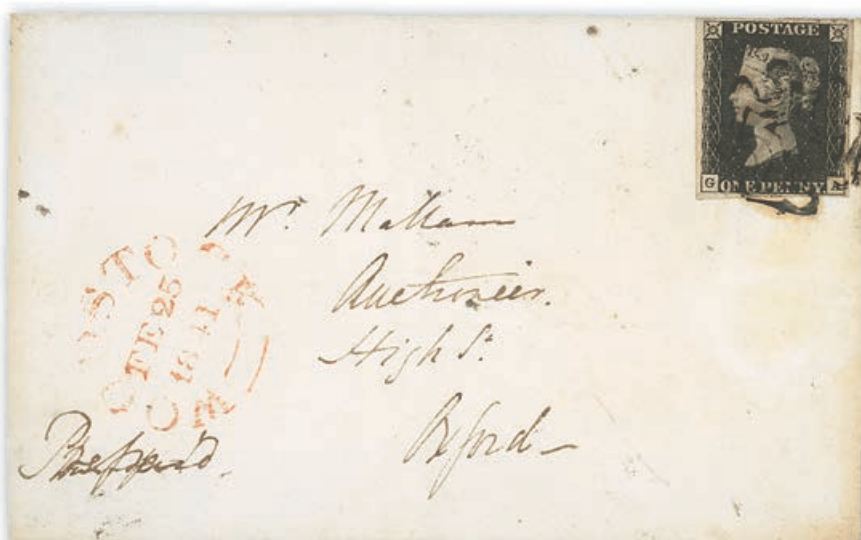 POSTAGE
G ONE PENNY. A
Mr. Mallam
Auctioneer.
High St.
Oxford
Prepaid
FE 25
1841